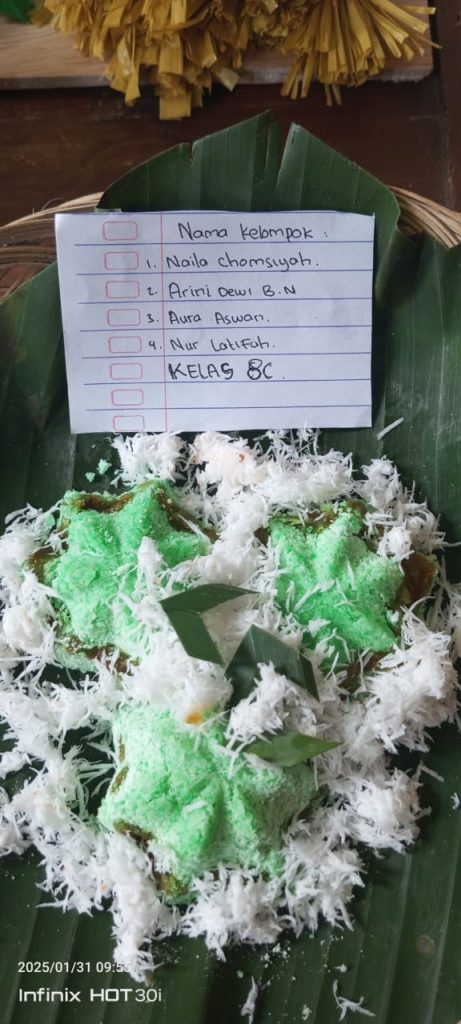 Nama Kelompok :
1. Naila Chomsiyah.
2. Arini Dewi B.N
3. Aura Aswan.
4. Nur Latifah.
KELAS 8C.
2025/01/31 09:55
Infinix HOT 30i